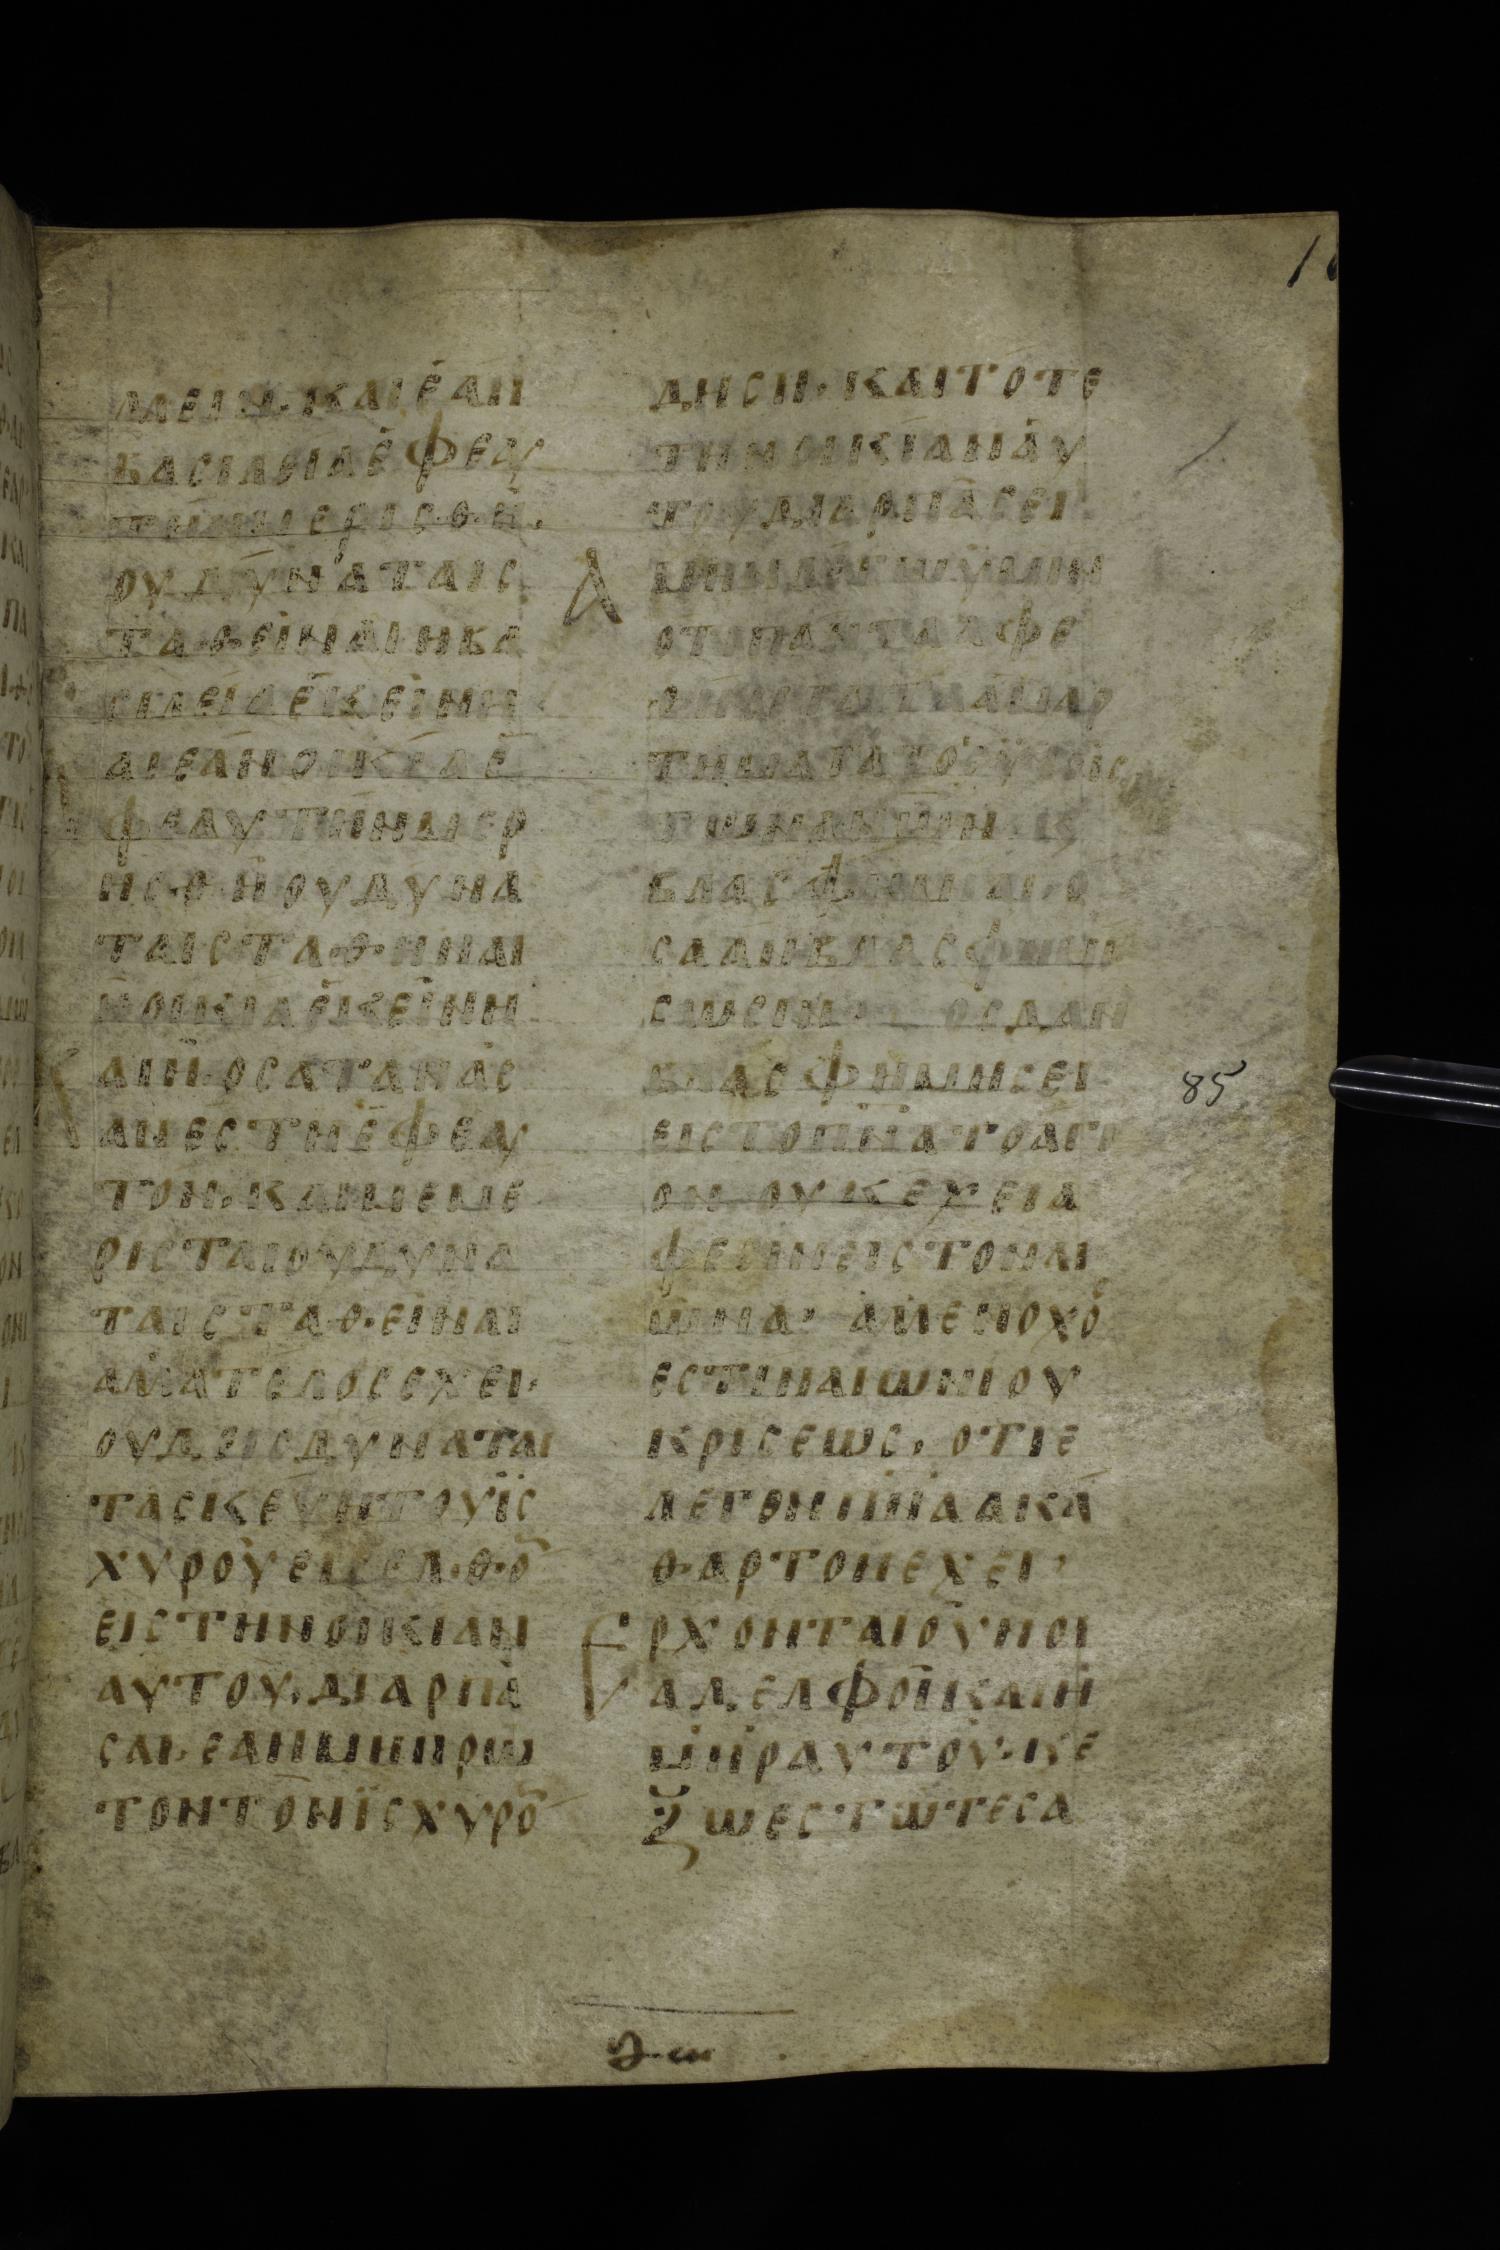 ΛΛΕΙΝ· ΚΑΙ ΕΑΝ
ΒΑΣΙΛΕΙΑ ΕΦ ΕΑΥ
ΤΗΝ ΜΕΡΙΣΘΗ·
ΟΥ ΔΥΝΑΤΑΙ Σ
ΤΑΘΕΙΝΑΙ Η ΒΑ
ΣΙΛΕΙΑ ΕΚΕΙΝΗ
ΑΙ ΕΑΝ ΟΙΚΙΑ Ε
Φ ΕΑΥΤΗΝ ΜΕΡ
ΗΣΘΗ ΟΥ ΔΥΝΑ
ΤΑΙ ΣΤΑΘΗΝΑΙ
Η ΟΙΚΙΑ ΕΚΕΙΝΗ
ΚΑΙ Η Ο ΣΑΤΑΝΑΣ
ΑΝΕΣΤΗ ΕΦ ΕΑΥ
ΤΟΝ· ΚΑΙ ΜΕΜΕ
ΡΙΣΤΑΙ ΟΥ ΔΥΝΑ
ΤΑΙ ΣΤΑΘΕΙΝΑΙ
ΑΛΛΑ ΤΕΛΟΣ ΕΧΕΙ·
ΟΥΔΕΙΣ ΔΥΝΑΤΑΙ
ΤΑ ΣΚΕΥΗ ΤΟΥ ΪΣ
ΧΥΡΟΥ ΕΙΣΕΛΘΟ̄
ΕΙΣ ΤΗΝ ΟΙΚΙΑΝ
ΑΥΤΟΥ· ΔΙΑΡΠΑ
ΣΑΙ· ΕΑΝ ΜΗ ΠΡΩ
ΤΟΝ ΤΟΝ ΪΣΧΥΡΟ̄
ΔΗΣΗ· ΚΑΙ ΤΟΤΕ
ΤΗΝ ΟΙΚΙΑΝ ΑΥ
ΤΟΥ ΔΙΑΡΠΑΣΕΙ
ΑΜΗΝ ΛΕΓΩ ΥΜΙΝ
ΟΤΙ ΠΑΝΤΑ ΑΦΕ
ΘΗΣΕΤΑΙ ΤΑ ΑΜΑΡ
ΤΗΜΑΤΑ ΤΟΙΣ ΥΙΟΙΣ
ΤΩΝ ΑΝΩΝ Κ
ΒΛΑΣΦΗΜΙΑΙ· Ο
ΣΑ ΑΝ ΒΛΑΣΦΗΜΗ
ΣΩΣΙΝ· ΟΣ Δ ΑΝ
ΒΛΑΣΦΗΜΗΣΕΙ
ΕΙΣ ΤΟ ΠΝΑ ΤΟ ΑΓΙ
ΟΝ ΟΥΚ ΕΧΕΙ Α
ΦΕΣΙΝ ΕΙΣ ΤΟΝ ΑΙ
ΩΝΑ· ΑΛΛ ΕΝΟΧΟΣ
ΕΣΤΙΝ ΑΙΩΝΙΟΥ
ΚΡΙΣΕΩΣ· ΟΤΙ Ε
ΛΕΓΟΝ ΠΝΑ ΑΚΑ
ΘΑΡΤΟΝ ΕΧΕΙ·
ΕΡΧΟΝΤΑΙ ΟΥΝ ΟΙ
ΑΔΕΛΦΟΙ ΚΑΙ Η
ΜΗΡ ΑΥΤΟΥ· Κ Ε
ΞΩ ΕΣΤΩΤΕΣ Α
85